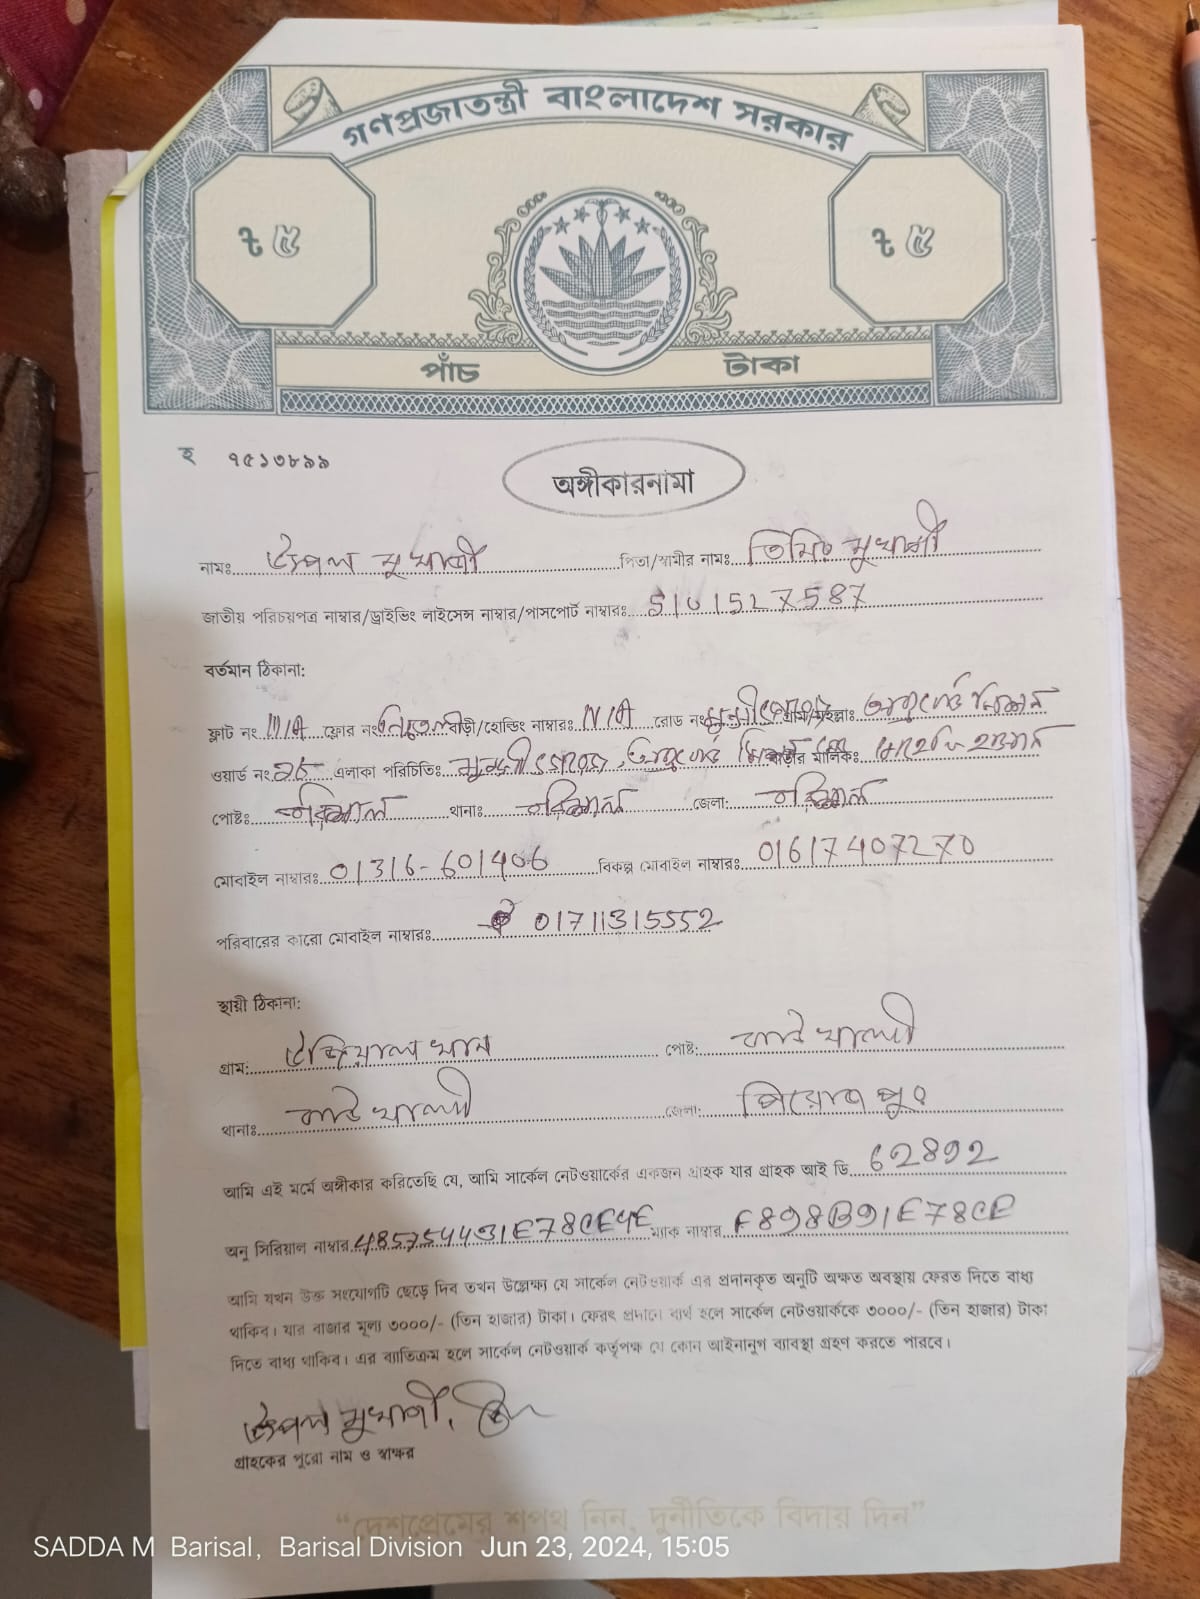 গণপ্রজাতন্ত্রী বাংলাদেশ সরকার
৳ ৫ ৳ ৫
পাঁচ টাকা
হ ৭৫১৩৮৯৯
অঙ্গীকারনামা
নামঃ উৎপল মুখার্জী পিতা/স্বামীর নামঃ তিমির মুখার্জী
জাতীয় পরিচয়পত্র নাম্বার/ড্রাইভিং লাইসেন্স নাম্বার/পাসপোর্ট নাম্বারঃ 5101527587
বর্তমান ঠিকানা:
ফ্লাট নং N/A ফ্লোর নং বাড়ী/হোল্ডিং নাম্বারঃ N/A রোড নং গ্রাম/মহল্লাঃ
ওয়ার্ড নং 26 এলাকা পরিচিতিঃ বাড়ীর মালিকঃ
পোষ্টঃ বরিশাল থানাঃ বরিশাল জেলা: বরিশাল
মোবাইল নাম্বারঃ 01316-601406 বিকল্প মোবাইল নাম্বারঃ 01617407270
পরিবারের কারো মোবাইল নাম্বারঃ 01711315552
স্থায়ী ঠিকানা:
গ্রাম: পোষ্ট: কাউখালী
থানাঃ কাউখালী জেলা: পিরোজপুর
আমি এই মর্মে অঙ্গীকার করিতেছি যে, আমি সার্কেল নেটওয়ার্কের একজন গ্রাহক যার গ্রাহক আই ডি 62892
অনু সিরিয়াল নাম্বার 485754431E78CE4E ম্যাক নাম্বার F898B91E78CE
আমি যখন উক্ত সংযোগটি ছেড়ে দিব তখন উল্লেক্ষা যে সার্কেল নেটওয়ার্ক এর প্রদানকৃত অনুটি অক্ষত অবস্থায় ফেরত দিতে বাধ্য
থাকিব। যার বাজার মূল্য ৩০০০/- (তিন হাজার) টাকা। ফেরৎ প্রদানে ব্যর্থ হলে সার্কেল নেটওয়ার্ককে ৩০০০/- (তিন হাজার) টাকা
দিতে বাধ্য থাকিব। এর ব্যতিক্রম হলে সার্কেল নেটওয়ার্ক কর্তৃপক্ষ যে কোন আইনানুগ ব্যাবস্থা গ্রহণ করতে পারবে।
উৎপল মুখার্জী,
গ্রাহকের পুরো নাম ও স্বাক্ষর
“দেশপ্রেমের শপথ নিন, দুর্নীতিকে বিদায় দিন”
SADDA M Barisal, Barisal Division Jun 23, 2024, 15:05